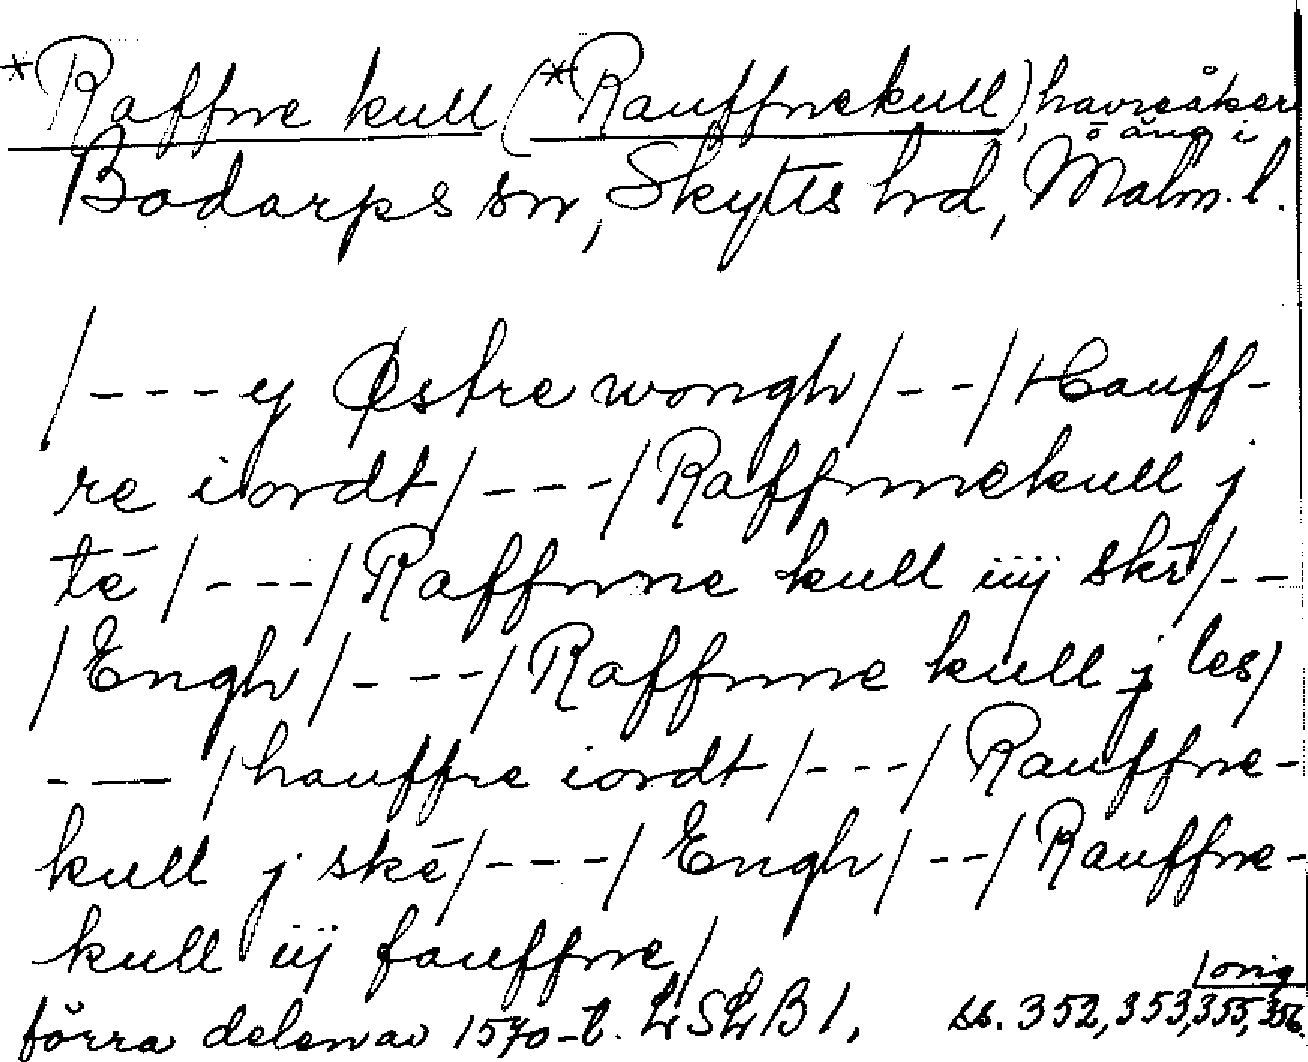 *Raffne kull (*Rauffnekull), havreåker
o äng i
Bodarps sn, Skytts hd, Malm. l.
/---ej Østre wongh/--/Hauff-
re iordt/---/Raffnnekull j
tē/---/Raffnne kull iij skē/--
/Engh/---/Raffnne kull j les/
--- /hauffre iordt/---/Rauffne-
kull j skē/---/Engh/--/Rauffne-
kull iij fauffne/
förra delen av 1570-t. LSLB 1, ss. 352, 353, 355, 356.
/orig